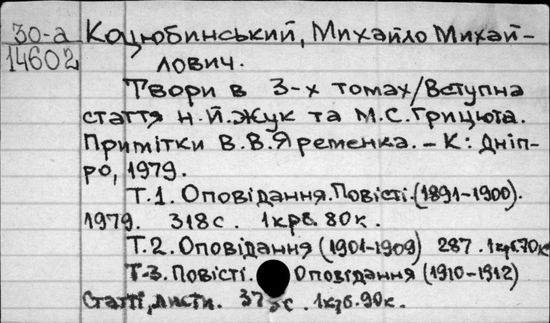 30-а Коцюбинський, Михайло Михай-
14602 лович.
Твори в 3-х томах/Вступна
стаття Н.Й.Жук та М.С.Грицюта.
Примітки В.В.Яременка. – К: Дніп-
ро, 1979.
Т.1. Оповідання. Повісті. (1891-1900).
1979. 318с. 1крб. 80к.
Т.2. Оповідання (1901-1909) 287. 1крб.70к
Т.3. Повісті. Оповідання (1910-1912)
Статті, листи. с. 1крб.90к.